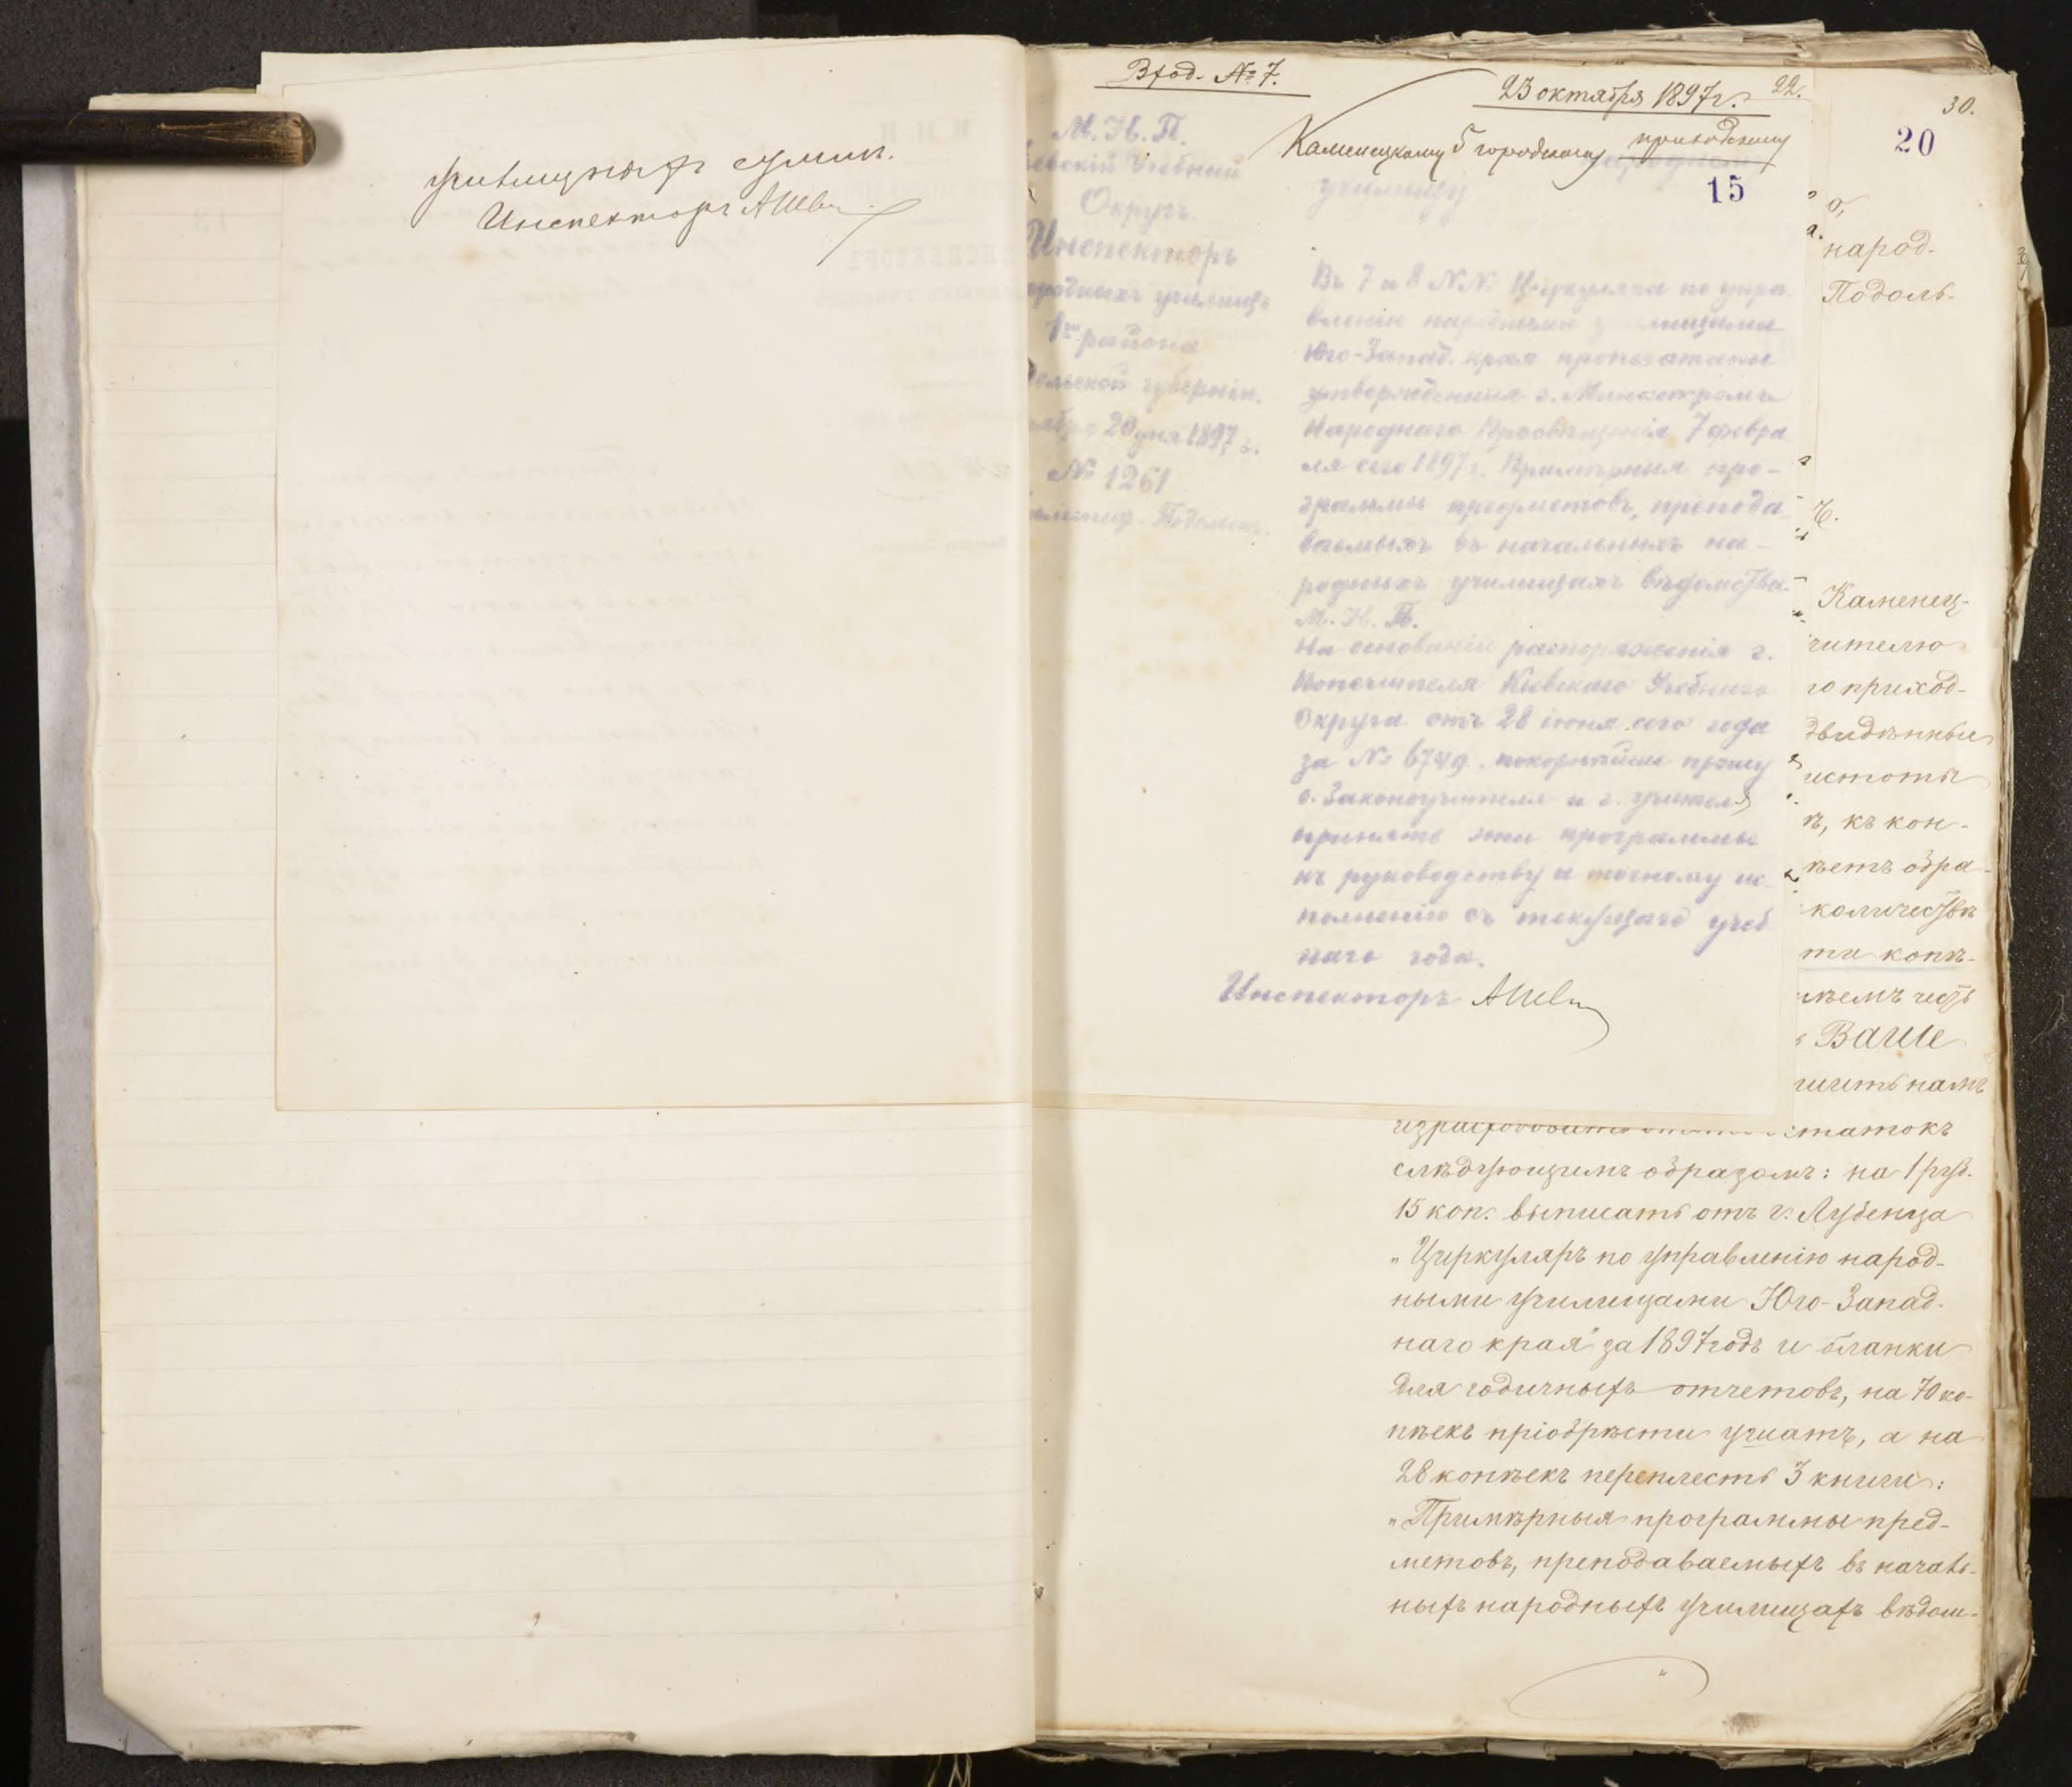 училищныхъ суммъ.
Инспекторъ АШев
Вход. № 7.
23 октября 1897 г.
22.
Каменецкому 5 городскому приходскому
училищу
15
М. Н. П.
евскій Учебный
Округъ.
Инспекторъ
ородныхъ училищъ
1го района
дольской губерніи.
ября 20 дня 1897 г.
№ 1261
Въ 7 и 8 №№ Циркуляра по упра
вленію народными училищами
Юго-Запад. края пропечатаны
утвержденныя г. Министромъ
Народнаго Просвѣщенія 7 февра
ля сего 1897 г. Примѣрныя про-
граммы предметовъ, препода
ваемыхъ въ начальныхъ на-
родныхъ училищахъ вѣдомства
М. Н. П.
На основаніи распоряженія г.
Попечителя Кіевскаго Учебнаго
Округа отъ 28 іюня сего года
за № 6749, покорнѣйше прошу
о. Законоучителя и г. учителя
принять эти программы
къ руководству и точному ис-
полненію съ текущаго учеб
наго года.
Инспекторъ АШев
30.
20
народ-
Подоль-
Каменец-
чителю
го приход-
двидѣнные
истоты
ъ, къ кон-
ѣетъ обра-
количествѣ
ти копѣ-
ѣемъ честь
Ваше
шить намъ
израсходовать статокъ
слѣдующимъ образомъ: на 1 руб.
15 коп. выписать отъ г. Лубенца
„Циркуляръ по управленію народ-
ными училищами Юго-Запад-
наго края" за 1897 годъ и бланки
для годичныхъ отчетовъ, на 70 ко-
пѣекъ пріобрѣсти ушатъ, а на
28 копѣекъ переплесть 3 книги:
„Примѣрныя программы пред-
метовъ, преподаваемыхъ въ началь-
ныхъ народныхъ училищахъ вѣдом-